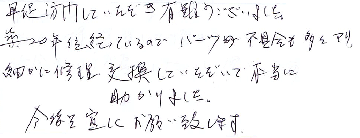 早速訪問していただき有難うございました
築20年位経っているので パーツ的 不具合も多々アリ
細かに修理 交換していただいて本当に
助かりました。
今後も宜しくお願い致します